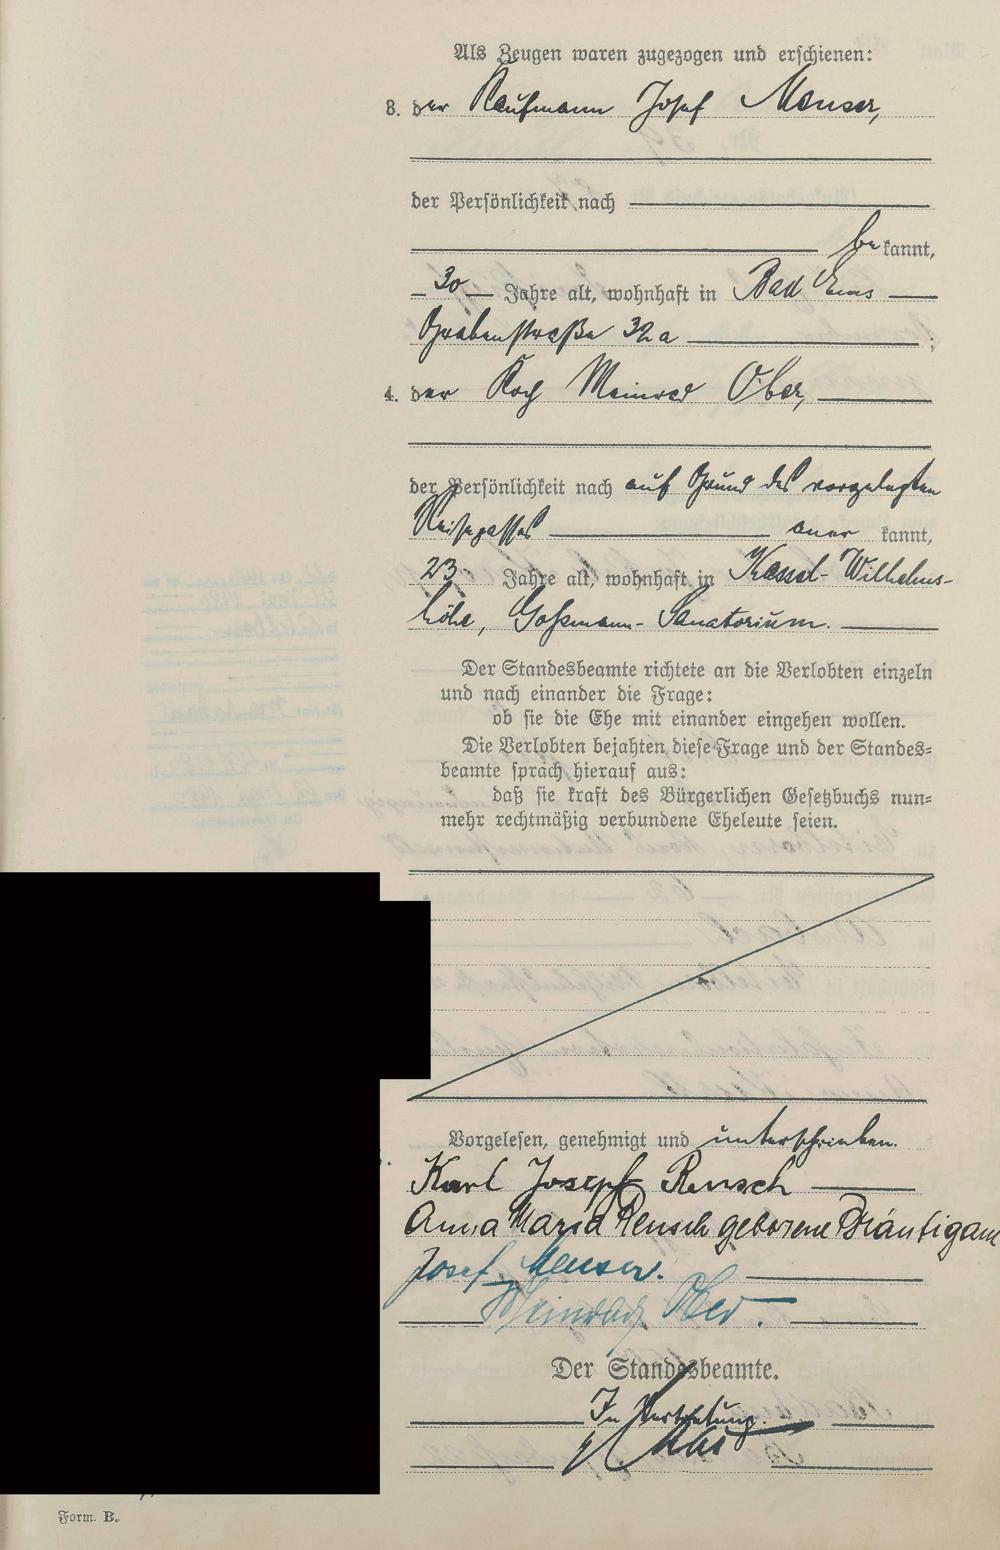 Als Zeugen waren zugezogen und erschienen:
3. der Kaufmann Josef Menser,
der Persönlichkeit nach
be kannt,
30 Jahre alt, wohnhaft in Bad Ems
Grabenstraße 32a ;
4. der Koch Meinrad Ober,
der Persönlichkeit nach auf Grund des vorgelegten
Reisepasses aner kannt,
23 Jahre alt, wohnhaft in Kassel-Wilhelms-
höhe, Goßmann-Sanatorium.
Der Standesbeamte richtete an die Verlobten einzeln
und nach einander die Frage:
ob sie die Ehe mit einander eingehen wollen.
Die Verlobten bejahten diese Frage und der Standes-
beamte sprach hierauf aus:
daß sie kraft des Bürgerlichen Gesetzbuchs nun-
mehr rechtmäßig verbundene Eheleute seien.
Vorgelesen, genehmigt und unterschrieben.
Karl Joseph Rensch
Anna Maria Rensch geborene Bräutigam
Josef Menser.
Meinrad Ober.
Der Standesbeamte.
In Vertretung.
Form. B.